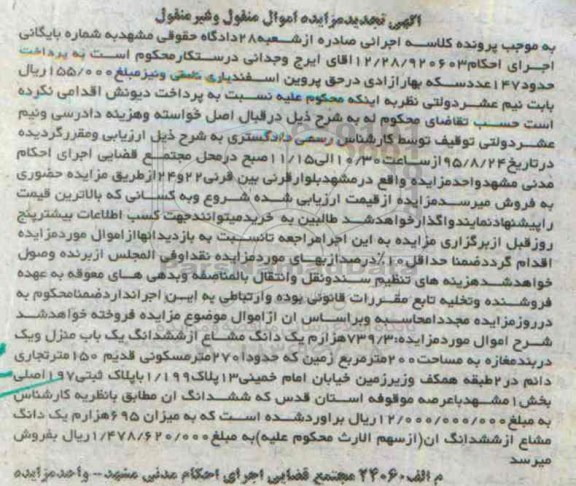 آگهی تجدیدمزایده اموال منقول وغیرمنقول
به موجب پرونده کلاسه اجرائی صادره ازشعبه۲۸دادگاه حقوقی مشهدبه شماره بایگانی
اجرای احکام۱۲/۲۸/۹۲۰۶۰۳آقای ایرج وجدانی درستکارمحکوم است به پرداخت
حدود۱۴۷عددسکه بهارازادی درحق پروین اسفندیاری کاسقی ونیزمبلغ۱۵۵/۰۰۰ریال
بابت نیم عشردولتی نظربه اینکه محکوم علیه نسبت به پرداخت دیونش اقدامی نکرده
است حسب تقاضای محکوم له به شرح ذیل درقبال اصل خواسته وهزینه دادرسی ونیم
عشردولتی توقیف توسط کارشناس رسمی دادگستری به شرح ذیل ارزیابی ومقررگردیده
درتاریخ۹۵/۸/۲۴ازساعت۱۰/۳۰الی۱۱/۱۵صبح درمحل مجتمع قضایی اجرای احکام
مدنی مشهدواحدمزایده واقع درمشهدبلوارقرنی بین قرنی۲۲و۲۴ازطریق مزایده حضوری
به فروش میرسدمزایده ازقیمت ارزیابی شده شروع وبه کسانی که بالاترین قیمت
راپیشنهادنمایندواگذارخواهدشد طالبین به خریدمیتوانندجهت کسب اطلاعات بیشترپنج
روزقبل ازبرگزاری مزایده به این اجرامراجعه تانسبت به بازدیدانهاازاموال موردمزایده
اقدام گرددضمنا حداقل۱۰٪درصدازبهای موردمزایده نقداوفی المجلس ازبرنده وصول
خواهدشدهزینه های تنظیم سندونقل وانتقال بالمناصفه وبدهی های معوقه به عهده
فروشنده وتخلیه تابع مقررات قانونی بوده وارتباطی به این اجرانداردضمنامحکوم به
درروزمزایده مجددامحاسبه وبراساس ان ازاموال موضوع مزایده فروخته خواهدشد
شرح اموال موردمزایده:۷۳۹/۳هزارم یک دانگ مشاع ازششدانگ یک باب منزل ویک
دربندمغازه به مساحت۲۰۰مترمربع زمین که حدودا۲۷۰مترمسکونی قدیم ۱۵۰مترتجاری
دائم در۲طبقه همکف وزیرزمین خیابان امام خمینی۱۳پلاک۱/۱۹۹باپلاک ثبتی۱۹۷اصلی
بخش۱مشهدباعرصه موقوفه استان قدس که ششدانگ ان مطابق بانظریه کارشناس
به مبلغ۱۲/۰۰۰/۰۰۰/۰۰۰ریال براوردشده است که به میزان ۶۹۵هزارم یک دانگ
مشاع ازششدانگ ان(ازسهم الارث محکوم علیه)به مبلغ۱/۴۷۸/۶۲۰/۰۰۰ریال بفروش
میرسد
م الف۲۴۰۶۰ مجتمع قضایی اجرای احکام مدنی مشهد- واحدمزایده